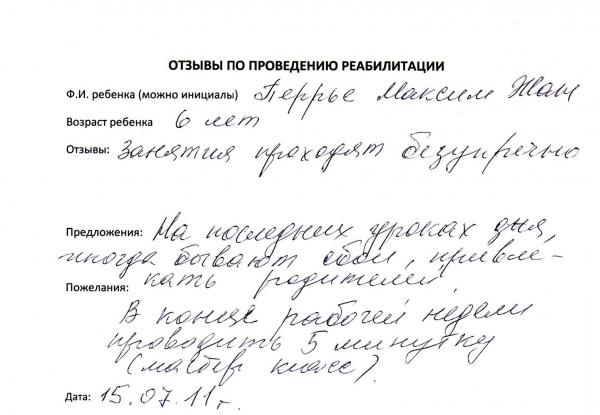 ОТЗЫВЫ ПО ПРОВЕДЕНИЮ РЕАБИЛИТАЦИИ
Ф.И. ребенка (можно инициалы) Перрье Максим Жан
Возраст ребенка 6 лет
Отзывы: Занятия проходят безупречно
Предложения: На последних уроках дня,
иногда бывают сбои, привле-
кать родителей.
Пожелания:
В конце рабочей недели
проводить 5 минутку
(мастер класс).
Дата: 15.07.11г.